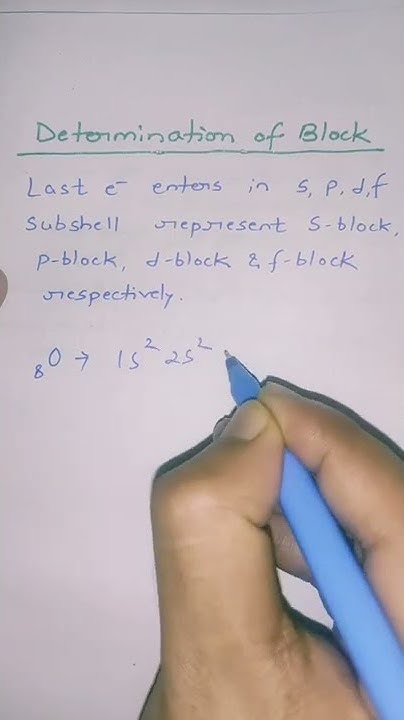 Determination of Block
Last e⁻ enters in s, p, d, f
subshell represent s-block,
p-block, d-block & f-block
respectively.
₈O → 1s² 2s²